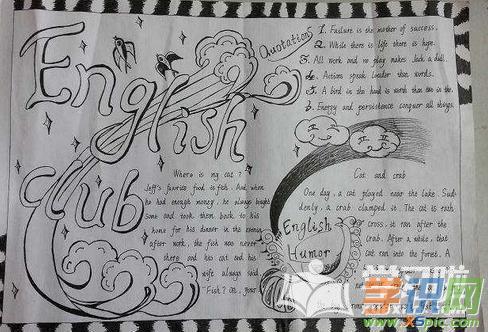 English
Club
Quotations
1. Failure is the mother of success.
2. While there is life there is hope.
3. All work and no play makes Jack a dull.
4. Actions speak louder than words.
5. A bird in the hand is worth than two in the
6. Energy and persistence conquer all things.
Where is my cat?
Jeff's favorite food is fish. And when
he had enough money, he always bought
some and took them back to his
home for his dinner in the evening
after work, the fish was never
there and his cat and his
wife always said,
"Fish? oh, your
English
Humor
Cat and crab
One day, a cat played near the lake. Sud-
denly, a crab clamped it. The cat is rath
cross, it ran after the
crab. After a while, that
cat ran into the forest. A
学识网
www.x5pic.com